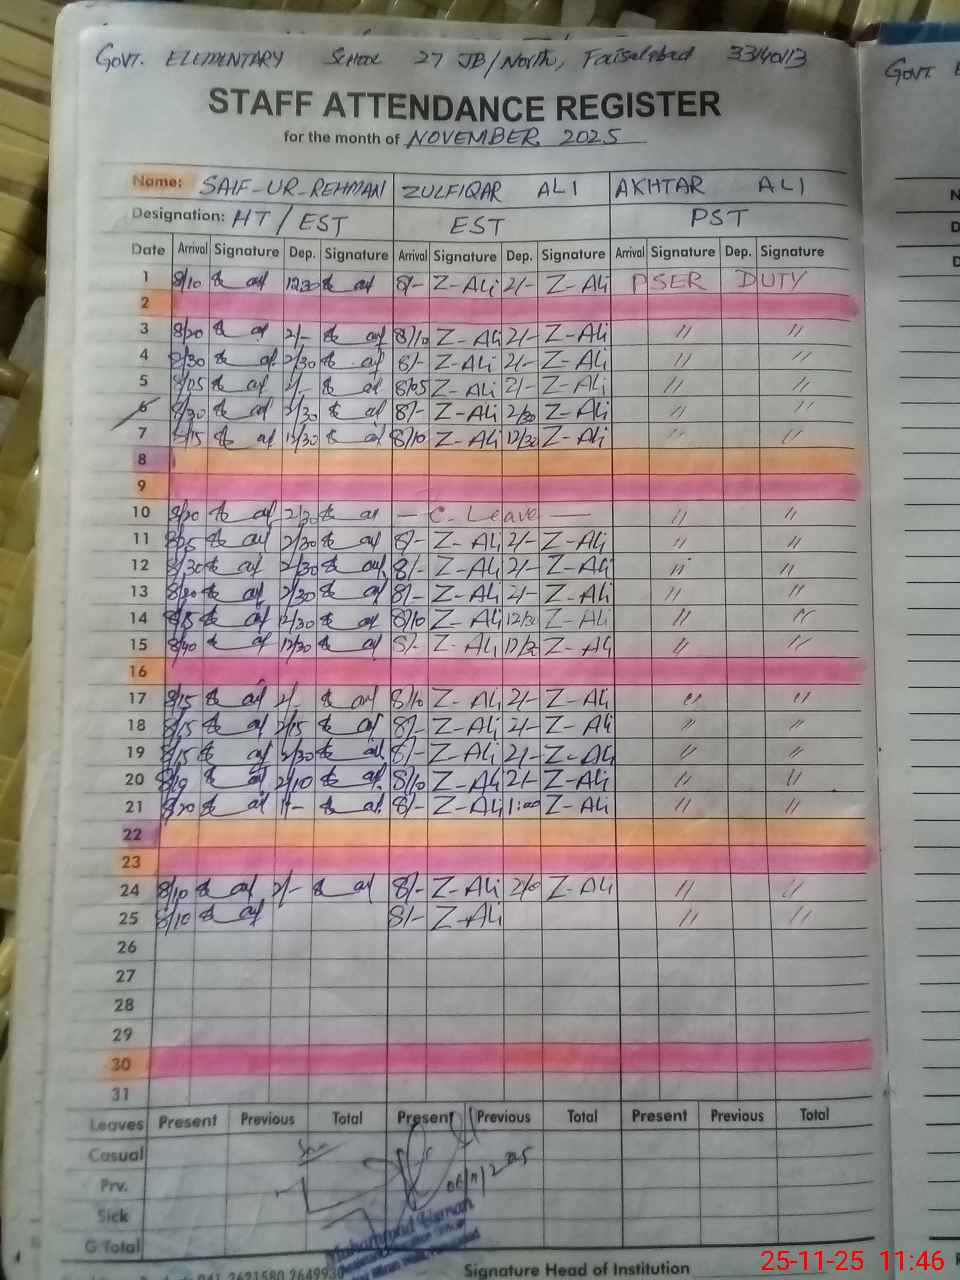 GOVT. ELEMENTARY SCHOOL 27 JB/North, Faisalabad 33140113
GOVT
STAFF ATTENDANCE REGISTER
for the month of NOVEMBER 2025
Name: SAIF-UR-REHMAN ZULFIQAR ALI AKHTAR ALI
Designation: HT/EST EST PST
Date Arrival Signature Dep. Signature Arrival Signature Dep. Signature Arrival Signature Dep. Signature
1 8/10 1230 8/- Z-Ali 2/- Z-Ali PSER DUTY
2
3 8/20 2/- 8/10 Z-Ali 2/- Z-Ali " "
4 8/30 2/30 8/- Z-Ali 2/- Z-Ali " "
5 8/25 2/- 8/05 Z-Ali 2/- Z-Ali " "
6 8/30 2/30 8/- Z-Ali 2/30 Z-Ali " "
7 8/15 12/30 8/10 Z-Ali 12/30 Z-Ali " "
8
9
10 8/20 2/30 — C. Leave — " "
11 8/25 2/30 8/- Z-Ali 2/- Z-Ali " "
12 8/30 2/30 8/- Z-Ali 2/- Z-Ali " "
13 8/30 2/30 8/- Z-Ali 2/- Z-Ali " "
14 8/15 12/30 8/10 Z-Ali 12/30 Z-Ali " "
15 8/40 12/30 8/- Z-Ali 12/30 Z-Ali " "
16
17 8/15 2/- 8/10 Z-Ali 2/- Z-Ali " "
18 8/15 2/15 8/- Z-Ali 2/- Z-Ali " "
19 8/15 2/30 8/- Z-Ali 2/- Z-Ali " "
20 8/10 2/10 8/10 Z-Ali 2/- Z-Ali " "
21 8/20 1/- 8/- Z-Ali 1:00 Z-Ali " "
22
23
24 8/10 2/- 8/- Z-Ali 2/0 Z-Ali " "
25 8/10 8/- Z-Ali " "
26
27
28
29
30
31
Leaves Present Previous Total Present Previous Total Present Previous Total
Casual
Prv.
Sick
G Total
Signature Head of Institution
041 2621580 2649930
25-11-25 11:46